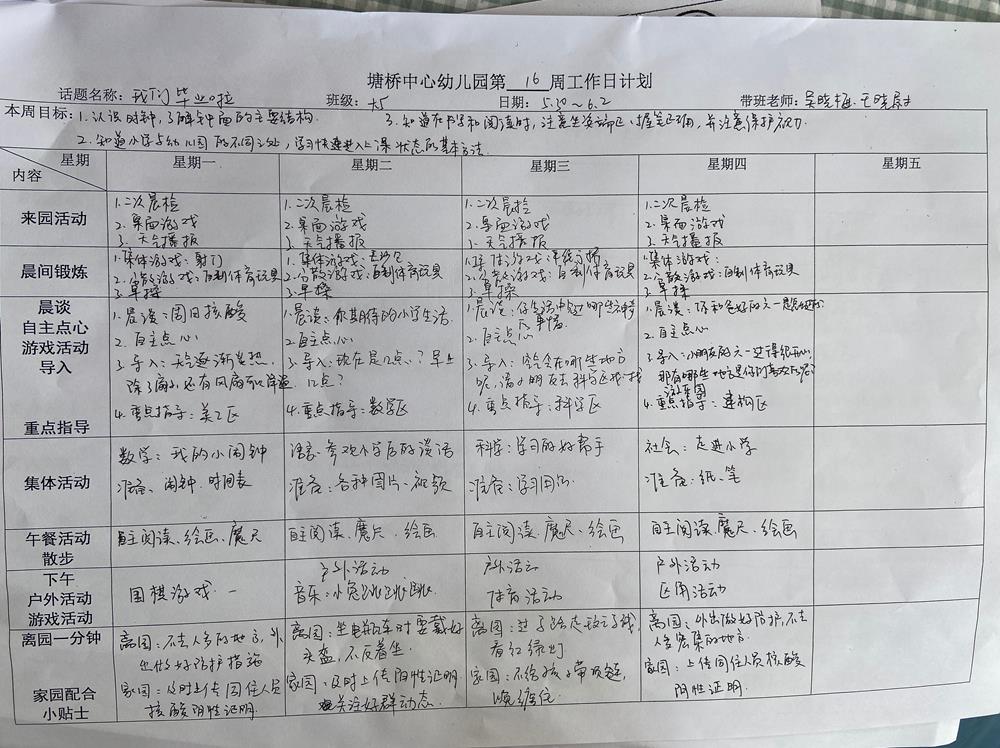 塘桥中心幼儿园第 16 周工作日计划
话题名称：我们毕业啦 班级：大5 日期：5.30～6.2 带班老师：吴晓梅、王晓
本周目标：1.认识时钟，了解钟面的主要结构. 3.知道在书写和阅读时，注意坐姿端正、握笔正确，并注意保护视力.
2.知道小学与幼儿园的不同之处，学习快速进入上课状态的基本方法.
星期 星期一 星期二 星期三 星期四 星期五
内容
来园活动
1.二次晨检
2.桌面游戏
3.天气播报
1.二次晨检
2.桌面游戏
3.天气播报
1.二次晨检
2.桌面游戏
3.天气播报
1.二次晨检
2.桌面游戏
3.天气播报
晨间锻炼
1.集体游戏：射门
2.分散游戏：自制体育玩具
3.早操
1.集体游戏：丢沙包
2.分散游戏：自制体育玩具
3.早操
1.集体游戏：
2.分散游戏：自制体育玩具
3.早操
1.集体游戏：
2.分散游戏：自制体育玩具
3.早操
晨谈
自主点心
游戏活动
导入
重点指导
1.晨谈：周日核酸
2.自主点心
3.导入：天气逐渐炎热，
除了扇子，还有风扇可以降温.
4.重点指导：美工区
1.晨谈：你期待的小学生活.
2.自主点心
3.导入：现在是几点？早上
几点？
4.重点指导：数学区
1.晨谈：在生活中遇到哪些
事情
2.自主点心
3.导入：会在哪些地方
呢，请小朋友去科学区找一找
4.重点指导：科学区
1.晨谈：你和爸妈的六一
2.自主点心
3.导入：小朋友的六一过得很开心，
那有哪些地方是你们喜欢玩的呢？
游乐园
4.重点指导：建构区
集体活动
数学：我的小闹钟
准备：闹钟、时间表
语言：参观小学后的谈话
准备：各种图片、视频
科学：学习的好帮手
准备：学习用品
社会：走进小学
准备：纸、笔
午餐活动
散步
自主阅读、绘画、魔尺
自主阅读、魔尺、绘画
自主阅读、魔尺、绘画
自主阅读、魔尺、绘画
下午
户外活动
游戏活动
围棋游戏
户外活动
音乐：小兔跳跳跳
户外活动
体育活动
户外活动
区角活动
离园一分钟
离园：不去人多的地方，外
出做好防护措施
离园：坐电瓶车时要戴好
头盔，不反着坐
离园：过了马路
看红绿灯
离园：外出做好防护，不去
人多密集的地方.
家园配合
小贴士
家园：及时上传同住人员
核酸阴性证明.
家园：及时上传阴性证明
关注好群动态.
家园：不给孩子带项链，
家园：上传同住人员核酸
阴性证明.